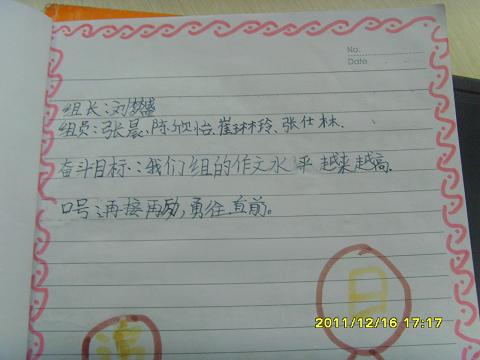 No.
Date
组长:刘梦盛
组员:张晨、陈欣怡、崔琳玲、张仕林.
奋斗目标::我们组的作文水平越来越高.
口号:再接再励,勇往直前。
日
2011/12/16 17:17